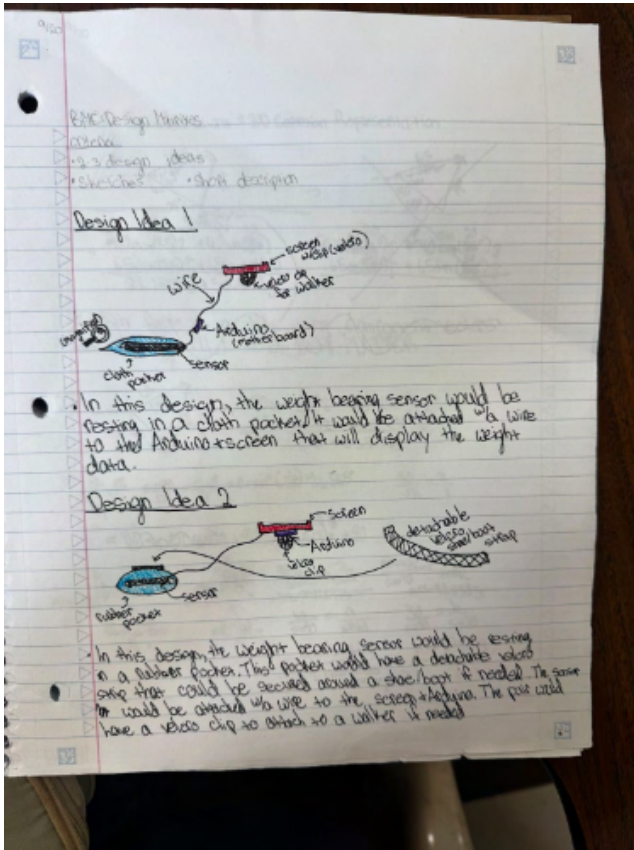 9/20
BMC: Design Matrixes
criteria:
• 2-3 design ideas
• sketches • short description
Design Idea 1
screen
w/clip (velcro)
velcro clip
for walker
wire
Arduino
(motherboard)
sensor
cloth
pocket
• In this design, the weight bearing sensor would be
resting in a cloth pocket. It would be attached w/a wire
to the Arduino + screen that will display the weight
data.
Design Idea 2
screen
Arduino
velcro
clip
detachable
velcro
shoe/boot
strap
sensor
rubber
pocket
• In this design, the weight bearing sensor would be resting
in a rubber pocket. This pocket would have a detachable velcro
strip that could be secured around a shoe/boot if needed. The sensor
would be attached w/a wire to the screen + Arduino. The pair would
have a velcro clip to attach to a walker if needed